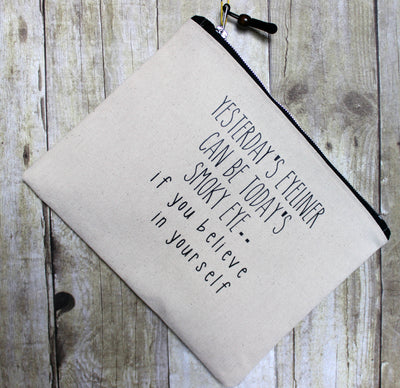 YESTERDAY'S EYELINER
CAN BE TODAY'S
SMOKY EYE..
if you believe
in yourself